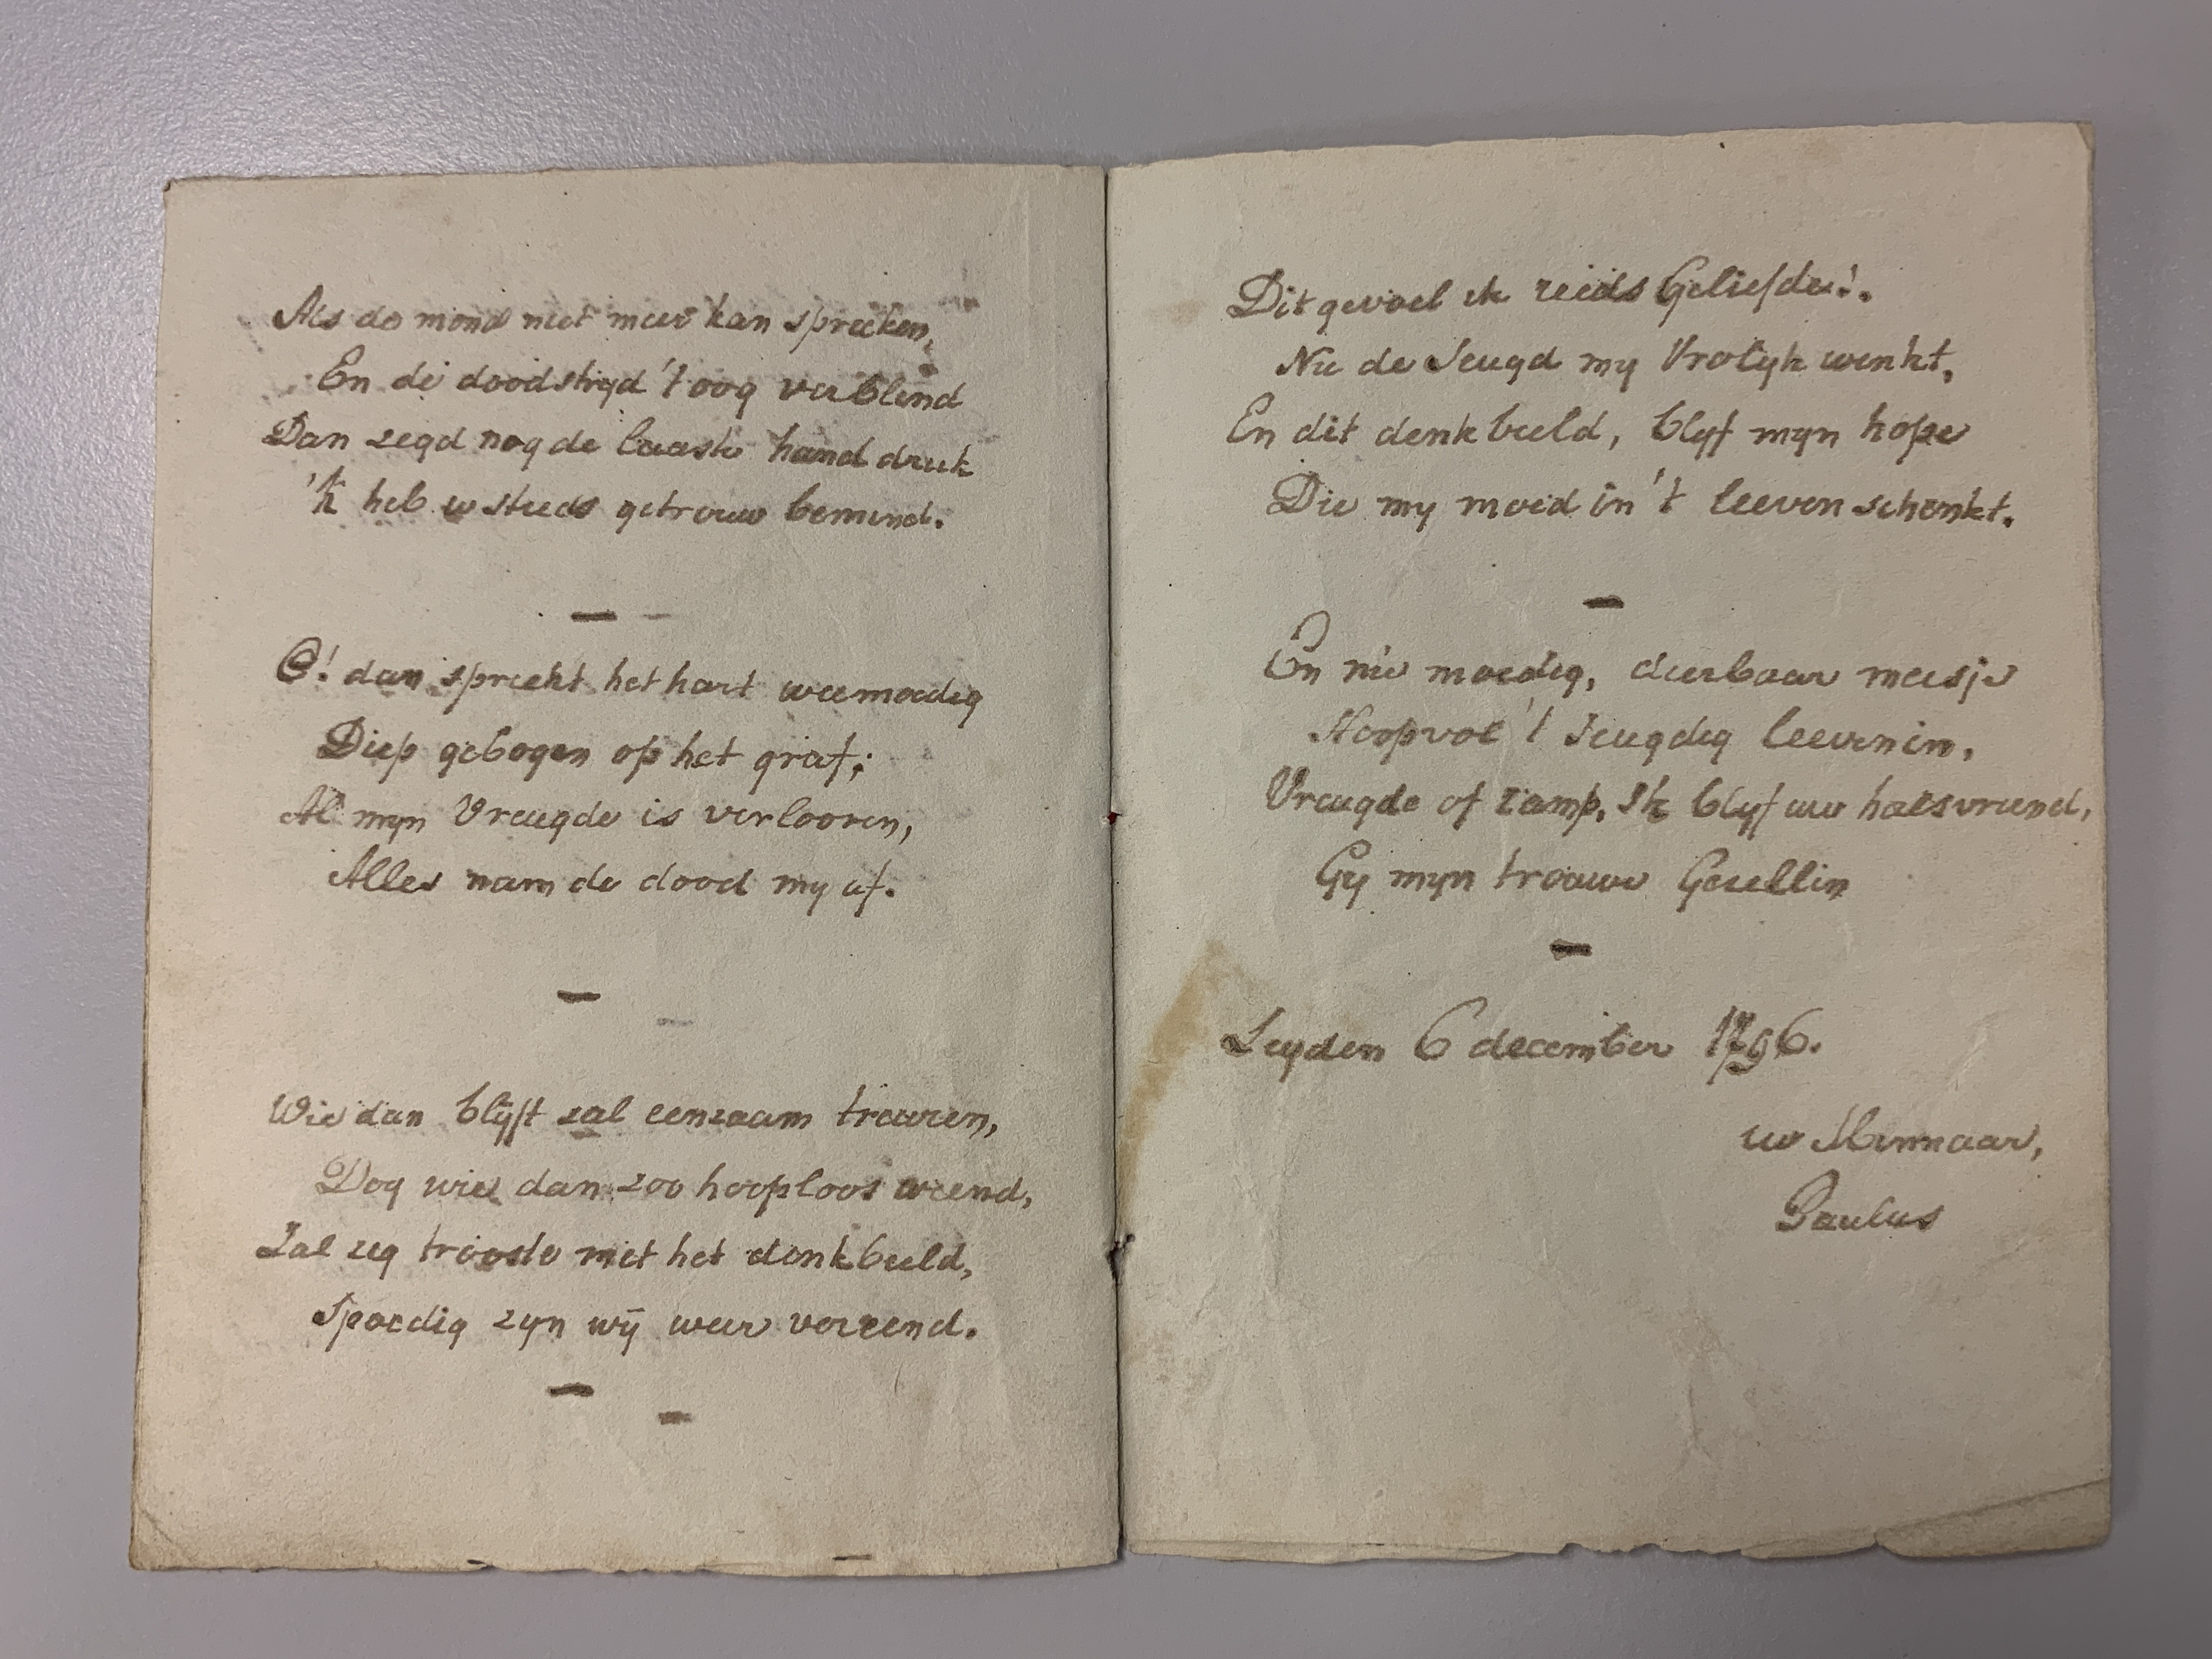 Als de mond niet meer kan spreeken,
En de doodstryd 't oog verblend
Dan zegd nog de laaste hand druk
'k heb u steeds getrouw bemind.
O! dan spreekt het hart weemoedig
Diep gebogen op het graf;
Al myn Vreugde is verlooren,
Alles nam de dood my af.
Wie dan blyft zal eenzaam treuren,
Dog wie dan zoo hooploos weend,
Zal zeg trooste met het denkbeeld,
Spoedig zyn wy weer vereend.
Dit gevoel ik reeds Geliefde!.
Nu de Jeugd my Vrolyk wenkt,
En dit denkbeeld, blyf myn hope
Die my moed in 't leeven schenkt.
En nu moedig, dierbaar meisje
Hoopvol 't Jeugdig leeven in,
Vreugde of ramp, Ik blyf uw halsvriend,
Gy myn trouwe Gesellin
Leyden 6 december 1796.
uw Minnaar,
Paulus